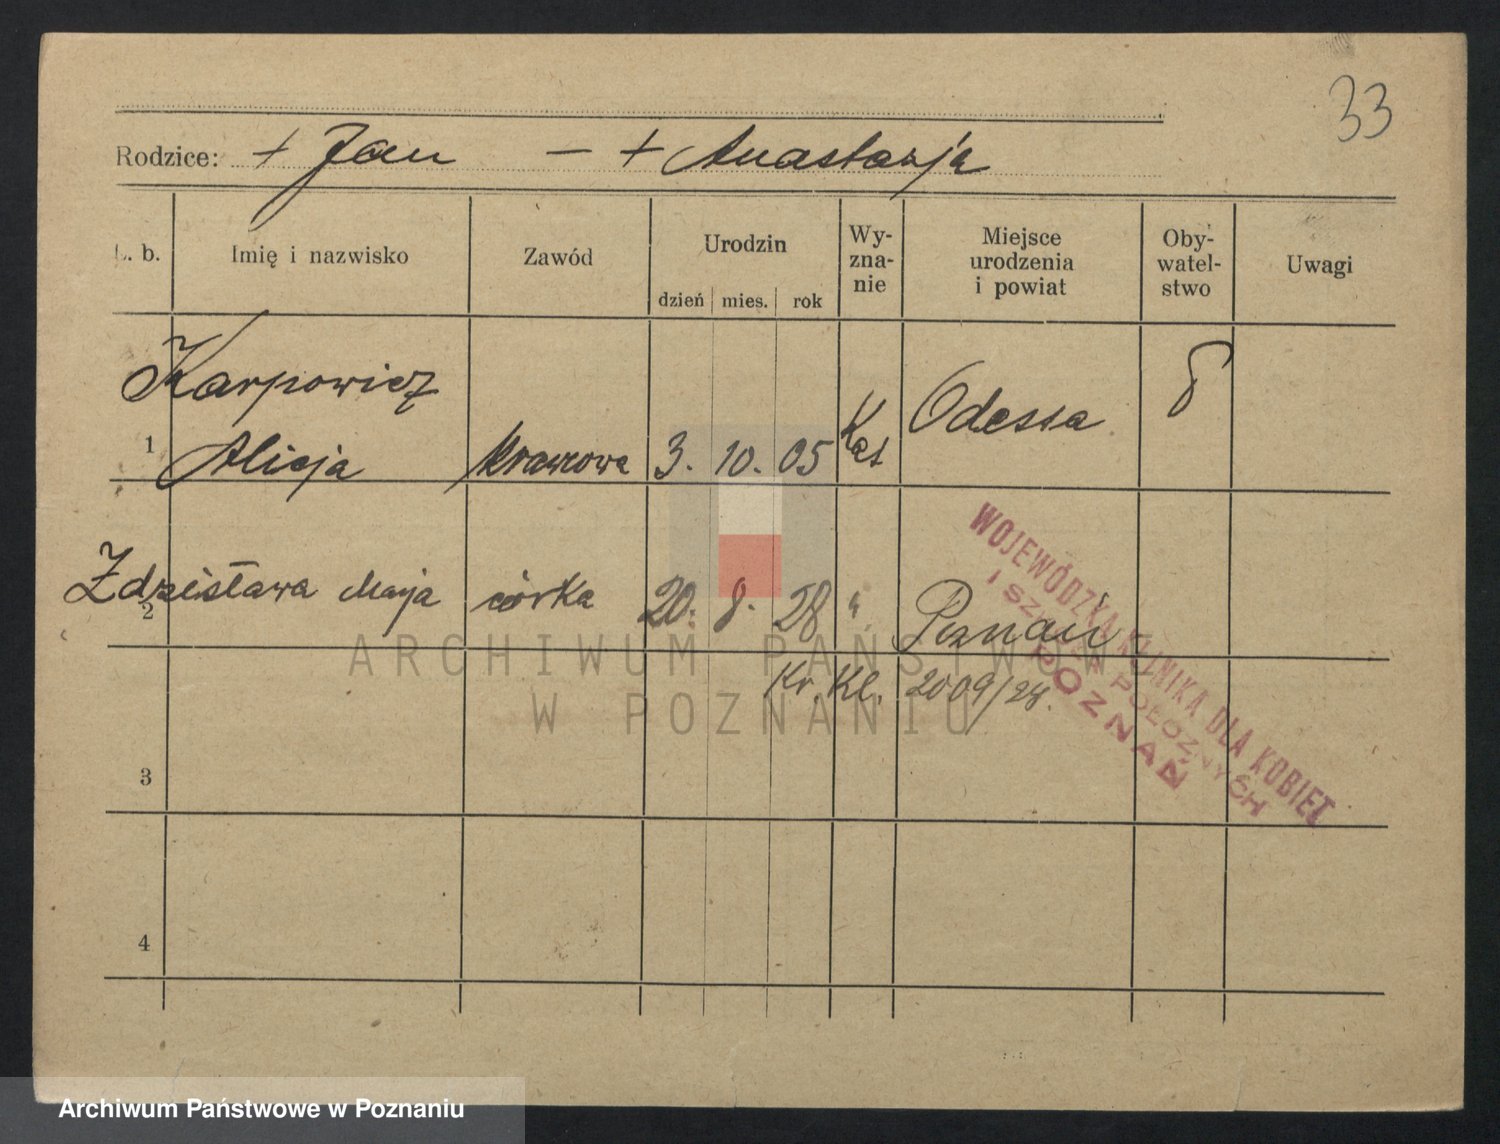 33
Rodzice: + Jan — + Anastazja
L. b.
Imię i nazwisko
Zawód
Urodzin
dzień mies. rok
Wy-
zna-
nie
Miejsce
urodzenia
i powiat
Oby-
watel-
stwo
Uwagi
Karpowicz
1 Alicja krawcowa 3. 10. 05 Kat Odessa
2 Zdzisława Maria córka 20. 8. 28 " Poznań
Kr. Kl. 2009/28.
WOJEWÓDZKA KLINIKA DLA KOBIET
I SZKOŁA POŁOŻNYCH
POZNAŃ
3
4
ARCHIWUM PAŃSTWOWE
W POZNANIU
Archiwum Państwowe w Poznaniu